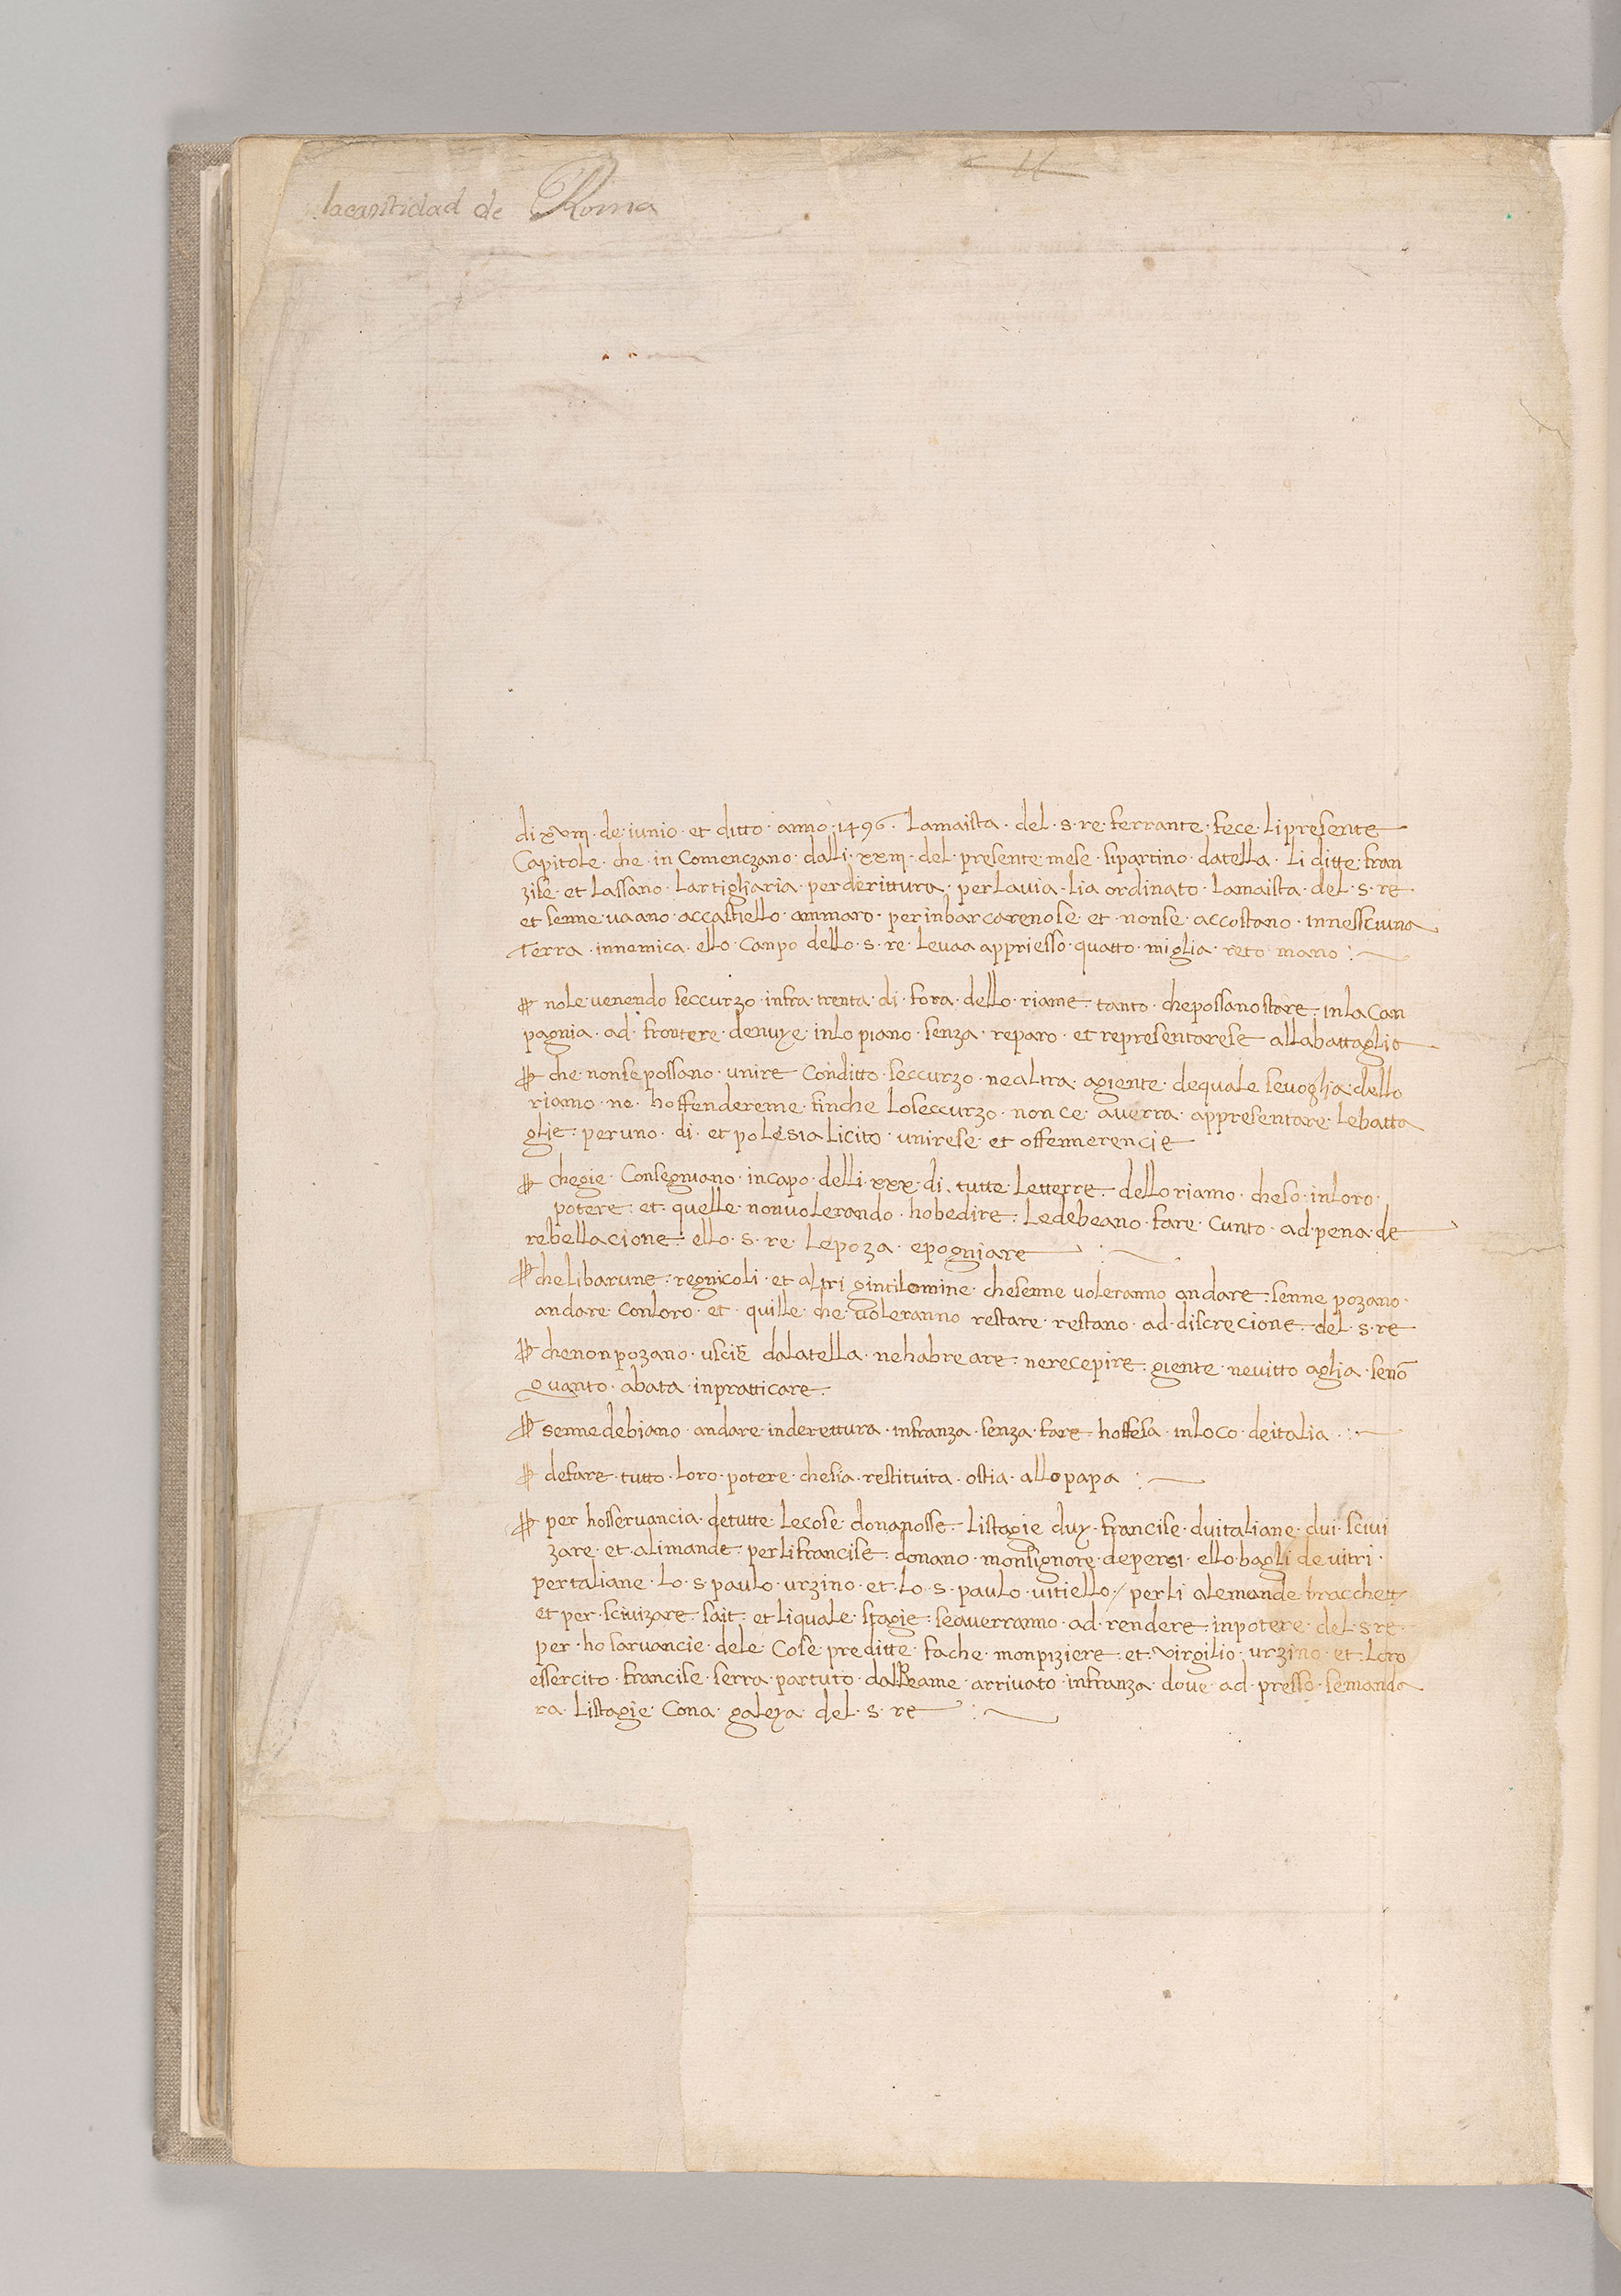 la cantidad de Roma
di xviii · de · iunio · et ditto · anno · 1496 · Lamaista · del · s · re · ferrante · fece · li presente
Capitole · che · in Comenczano · dalli · xxiii · del · presente · mese · sipartino · datella · li ditte · fran
zise · et Lassano · Lartigliaria · per derittura · per Lauia · lia ordinato · Lamaista · del · s · re ·
et senne · uaano · accastiello · ammaro · per inbarcarenose · et · nonse · accostano · innessciuna
Terra · innemica · ello · Canpo dello · s · re · Leuaa appriesso · quatto · miglia · reto mano :
nole · uenendo seccurzo · infra · trenta · di · fora · dello · riame · tanto · che possano stare · in la Can
pagnia · ad · frontere · denuye · inlo piano · senza · reparo · et representarese · alla battaglie
che · nonse possano · unire Conditto · seccurzo · ne altra · agiente · de quale se uoglia · dello
riamo · ne · hoffendereme · finche Loseccurzo · non ce · auerra · appresentare · le batta
glie · per uno · di · et po Lesia licito · unirese · et offennerencie
chegie · Consegniano · incapo · delli · xxx · di · tutte · Letterre · dello riamo · che so · inloro ·
potere · et · quelle · non uolerando · hobedire · Le debeano · fare · Cunto · ad · pena · de
rebellacione · ello · s · re · Lepoza · epogniare
che li barune · regnicoli · et altri gintilomine · che senne uoleranno andare · senne pozano ·
andare · Conloro · et · quille · che · uoleranno restare · restano · ad · discrecione · del · s · re
che non pozano · uscie dalatella · ne habreare · ne recepire · giente · ne uitto aglia · senõ
quanto · abata · inpratticare ·
senne debiano · andare inderettura · infranza · senza · fare · hoffesa · inloco · deitalia · :
defare · tutto · loro · potere · che sia · restituita · ostia · allo papa :
per hosseruancia · de tutte · Le cose · donanosse · Li stagie duy · francise · dui taliane · dui · sciui
zare · et · alimande · per li francise · donano · monsignore · de persi · ello · bagli de uitri ·
per taliane · lo · s · paulo · urzino · et · lo · s · paulo · uitiello · / per li alemande bracchett
et per · sciuizare · sait · et li quale · stagie · se auerranno · ad · rendere · inpotere · del · s re ·
per · hosaruancie · dele · Cose · preditte · fache · monpiziere · et · virgilio · urzino · et · Loro
essercito · francise · serra · partuto · dal Reame · arriuato · infranza · doue · ad · presso · se manda
ra · li stagie · Cona · galeya · del · s · re :